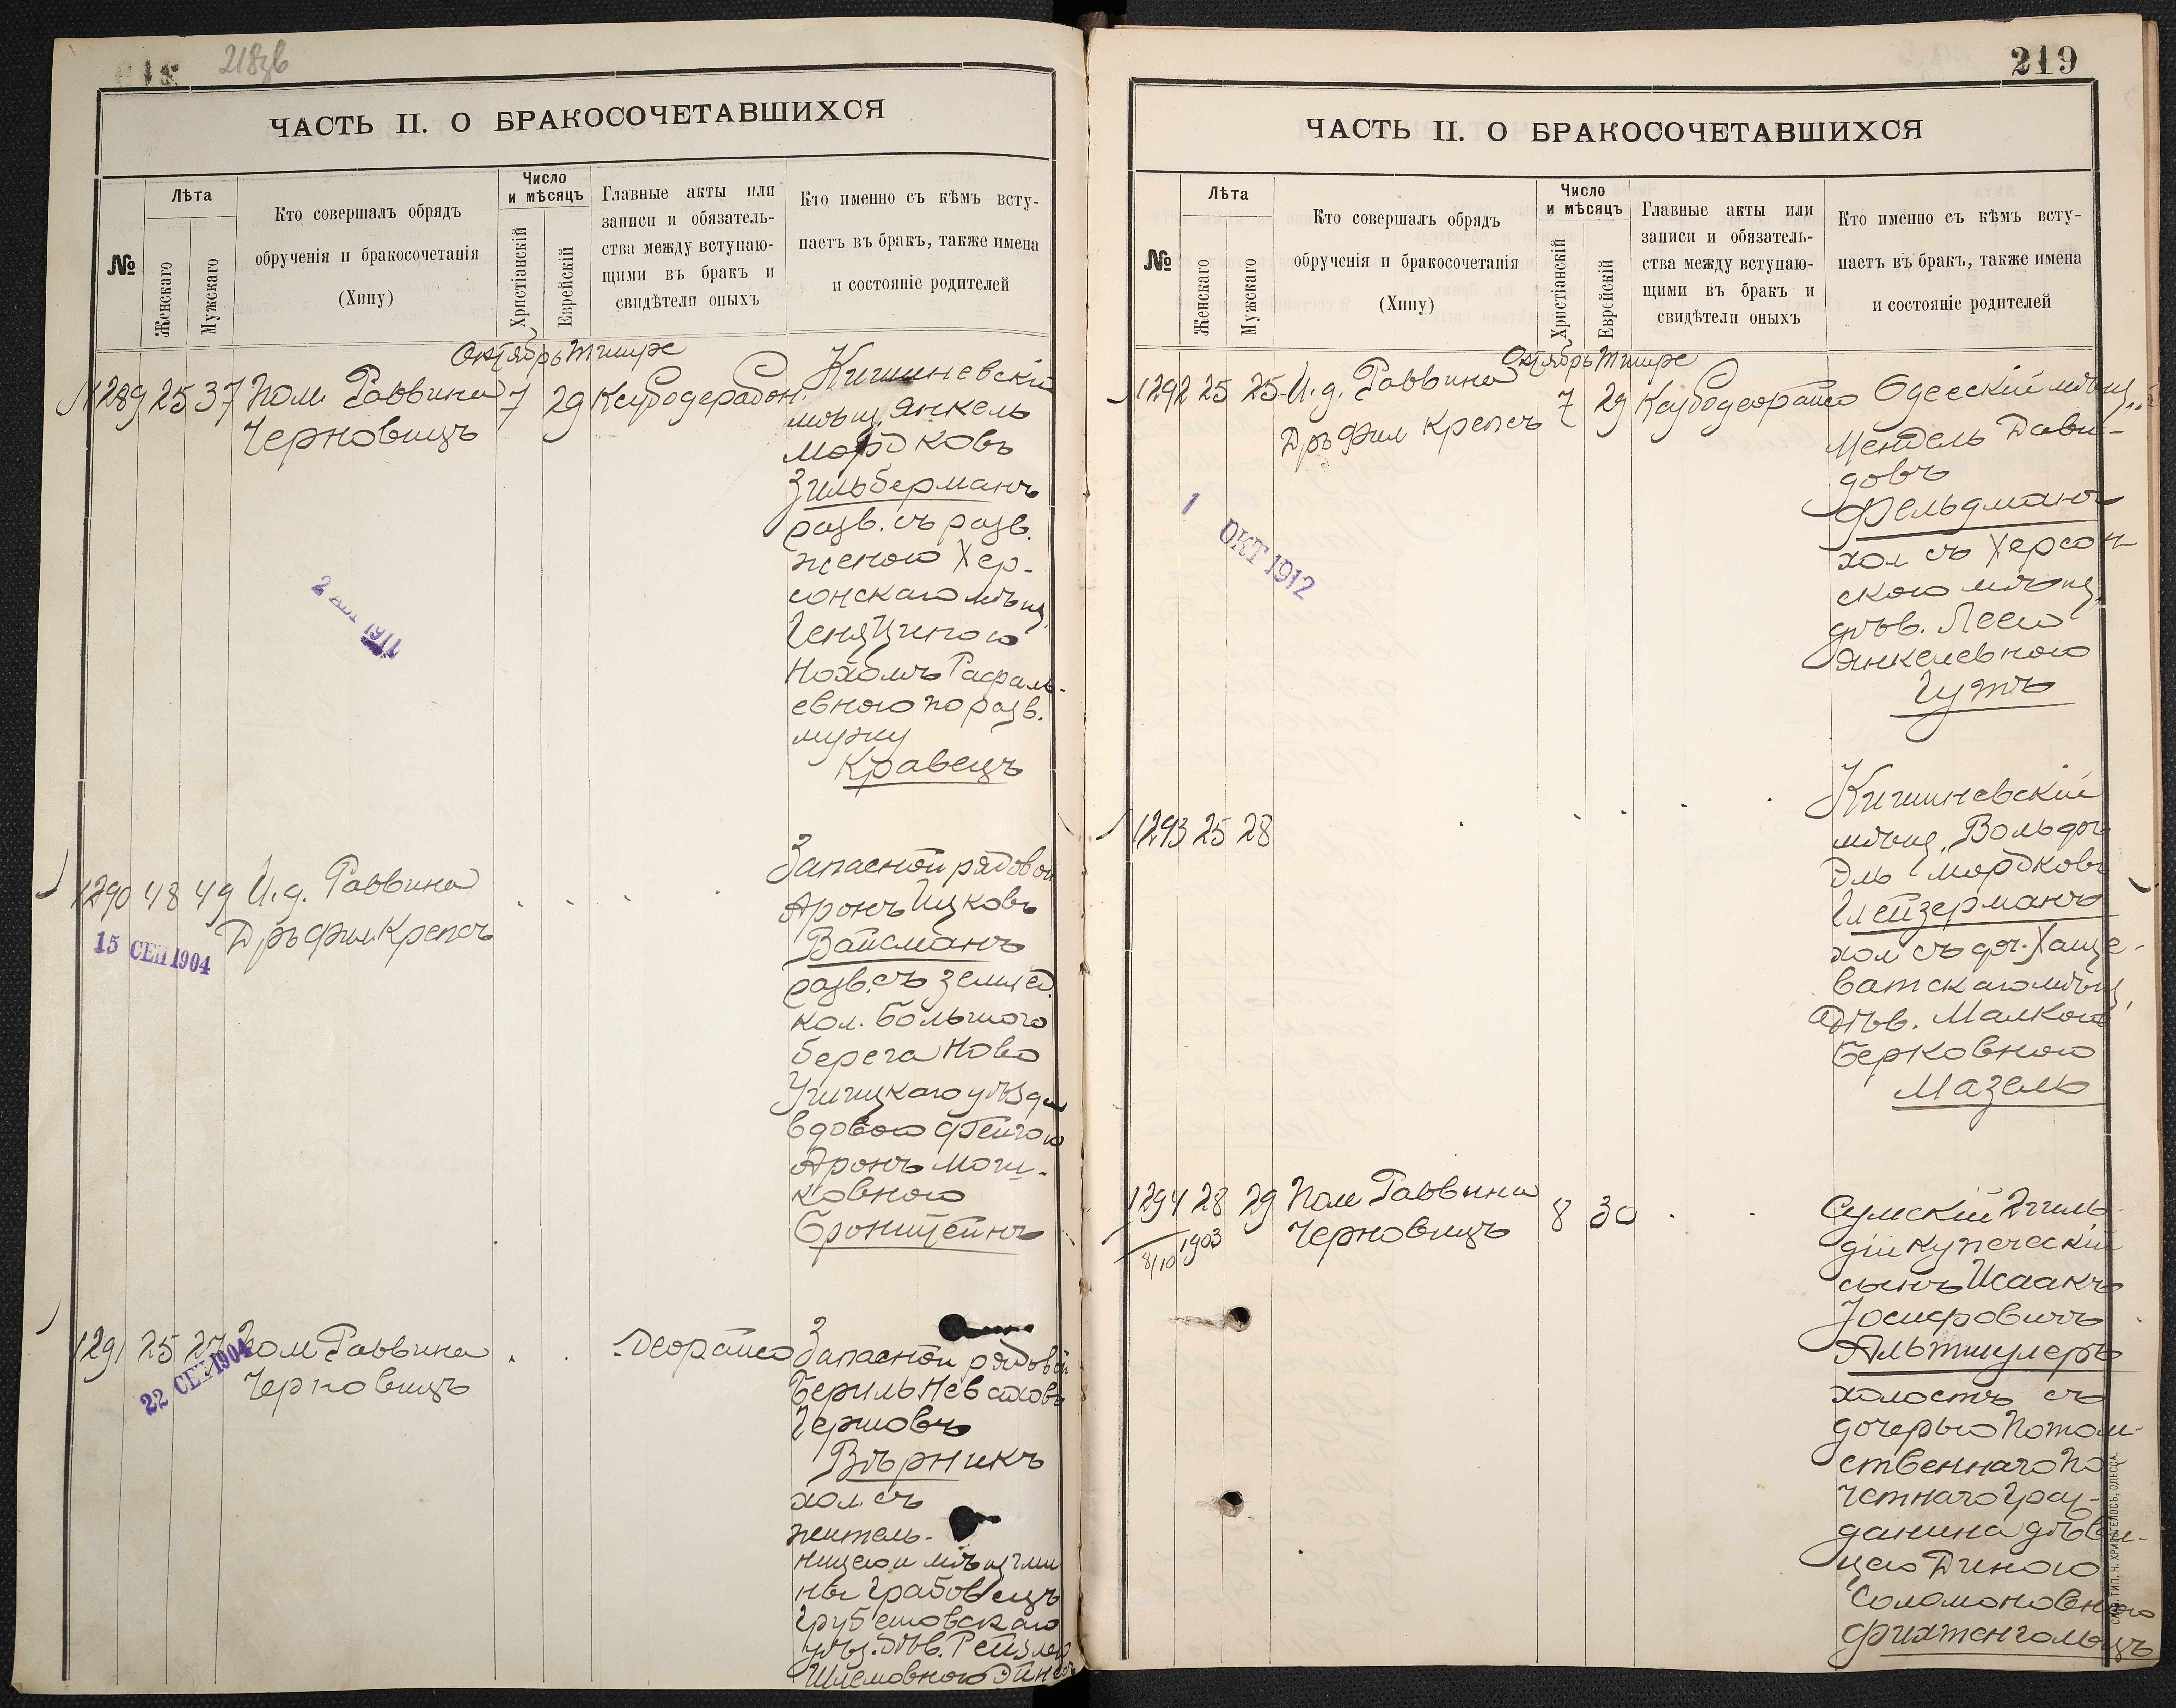 218зв
ЧАСТЬ II. О БРАКОСОЧЕТАВШИХСЯ
№
Лѣта
Женскаго
Мужскаго
Кто совершалъ обрядъ
обрученія и бракосочетанія
(Хипу)
Число
и мѣсяцъ
Христіанскій
Еврейскій
Главные акты или
записи и обязатель-
ства между вступаю-
щими въ бракъ и
свидѣтели оныхъ
Кто именно съ кѣмъ всту-
паетъ въ бракъ, также имена
и состояніе родителей
Октябрь Тишре
1289 25 37 Пом. Раввина 7 29
Черновицъ
Кишиневскій
мѣщ. Янкель
Мордковъ
Зильберманъ
разв. съ разв.
женою Хер-
сонскаго мѣщ.
Геня Циною
Нохомъ Рафаль-
евною по разв.
мужу
Кравецъ
2 1911
1290 48 49 И.д. Раввина
Дръ Фил. Крепсъ
15 СЕН 1904
Запасной рядовой
Аронъ Ицковъ
Вайсманъ
разв. съ землед.
кол. Большого
берега Ново
Ушицкаго уѣзда
вдовою Фейгою
Аронъ Мош-
ковною
Бронштейнъ
1291 25 27 Пом Раввина
Черновицъ
22 СЕН 1904
Деорайсо
Запасной рядовой
Бериль
Вѣрникъ
хол. съ
житель-
ницею и мѣщ гми
ны Грабовецъ
Грубешовскаго
уѣз. дѣв. Рейзлею
Шлемовною
219
ЧАСТЬ II. О БРАКОСОЧЕТАВШИХСЯ
№
Лѣта
Женскаго
Мужскаго
Кто совершалъ обрядъ
обрученія и бракосочетанія
(Хипу)
Число
и мѣсяцъ
Христіанскій
Еврейскій
Главные акты или
записи и обязатель-
ства между вступаю-
щими въ бракъ и
свидѣтели оныхъ
Кто именно съ кѣмъ всту-
паетъ въ бракъ, также имена
и состояніе родителей
Октябрь Тишре
1292 25 25 И.д. Раввина 7 29 Ксубодеорайсо
Дръ Фил Крепсъ
1 ОКТ 1912
Одесскій мѣщ.
Мендель Дави-
довъ
Фельдманъ
хол съ Херсон-
скою мѣщ.
дѣв. Леею
Янкелевною
Гутъ
1293 25 28
Кишиневскій
мѣщ. Вольфъ
Эль Мордковъ
Глейзерманъ
хол съ доч. Хаще-
ватскаго мѣщ.
дѣв. Малкою
Берковною
Мазель
1294 28 29 Пом Раввина 8 30
Черновицъ
8/10 1903
Сумскій 2 гиль-
діи купеческій
сынъ Исаакъ
Іосифовичъ
Альтшулеръ
холостъ съ
дочерью Потом-
ственнаго По
четнаго Граж-
данина дѣви-
цею Диною
Соломоновною
Фихтенгольцъ
ТИП. Н. ХРИСОГЕЛОСЪ, ОДЕССА